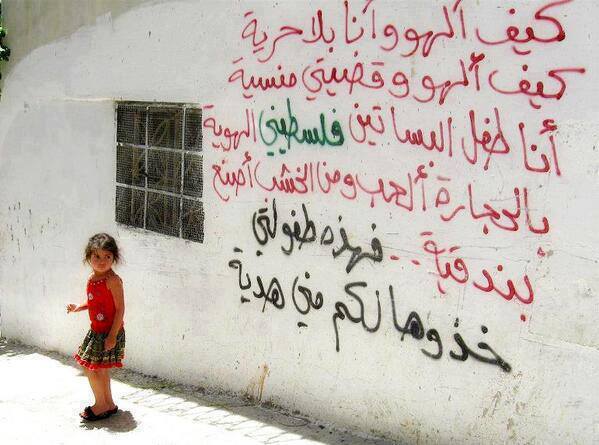 كيف ألهو وأنا بلا حرية
كيف ألهو وقضيتي منسية
أنا طفل البساتين فلسطيني الهوية
بالحجارة ألعب ومن الخشب أصنع
بندقية... فهذه طفولتي
خذوها لكم مني هدية